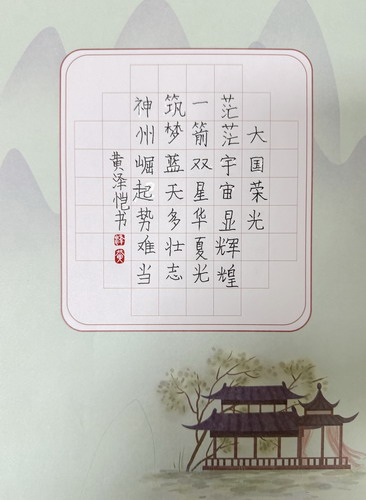 大国荣光
茫茫宇宙显辉煌
一箭双星华夏光
筑梦蓝天多壮志
神州崛起势难当
黄泽恺书